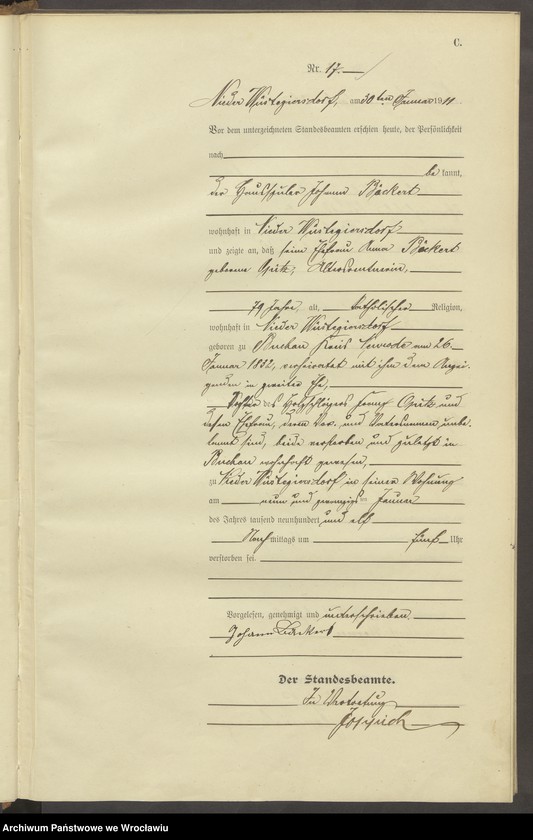 C.
Nr. 17.
Nieder Wüstegiersdorf, am 30ten Januar 1911
Vor dem unterzeichneten Standesbeamten erschien heute, der Persönlichkeit
nach
be kannt,
der Hausspuler Johann Bäckert
wohnhaft in Nieder Wüstegiersdorf
und zeigte an, daß seine Ehefrau Anna Bäckert
geborene Opitz, Altersrentnerin,
79 Jahre alt, katholischer Religion,
wohnhaft in Nieder Wüstegiersdorf
geboren zu Buchau Kreis Neurode am 26.
Januar 1832, verheiratet mit ihm dem Anzei-
genden in zweiter Ehe,
Tochter des Franz Opitz und
dessen Ehefrau, deren Vor- und Vatersnamen unbe-
kannt sind, beide verstorben und zuletzt in
Buchau wohnhaft gewesen,
zu Nieder Wüstegiersdorf in seiner Wohnung
am neun und zwanzigsten Januar
des Jahres tausend neunhundert und elf
Nach mittags um fünf Uhr
verstorben sei.
Vorgelesen, genehmigt und unterschrieben
Johann Bäckert
Der Standesbeamte.
In Vertretung
Archiwum Państwowe we Wrocławiu